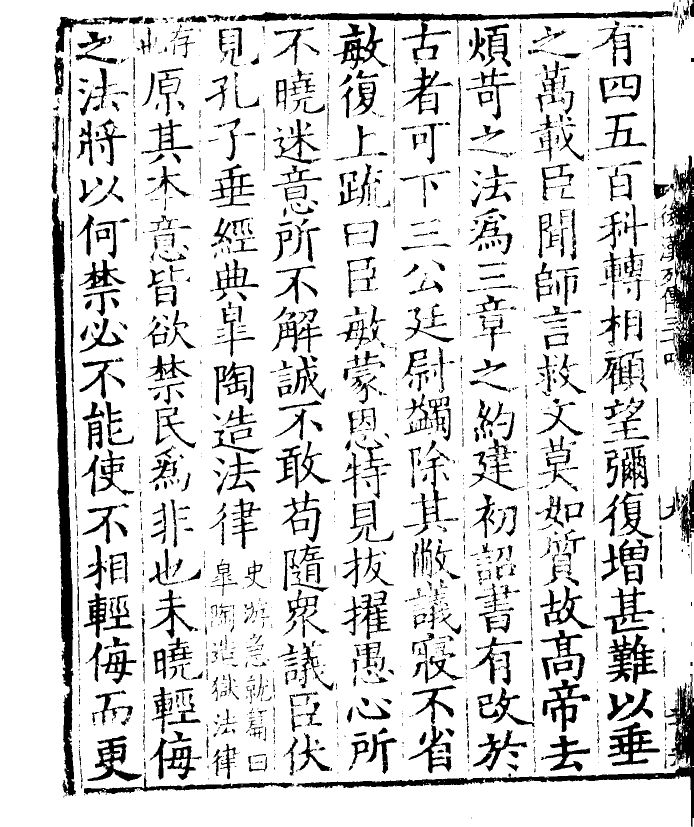 有四五百科轉相顧望彌復增甚難以垂
之萬載臣聞師言救文莫如質故高帝去
煩苛之法爲三章之約建初詔書有改於
古者可下三公廷尉蠲除其敝議寢不省
敏復上疏曰臣敏蒙恩特見拔擢愚心所
不曉迷意所不解誠不敢苟隨衆議臣伏
見孔子垂經典皐陶造法律史游急就篇曰皐陶造獄法律
存也原其本意皆欲禁民爲非也未曉輕侮
之法將以何禁必不能使不相輕侮而更
後漢列傳三十四